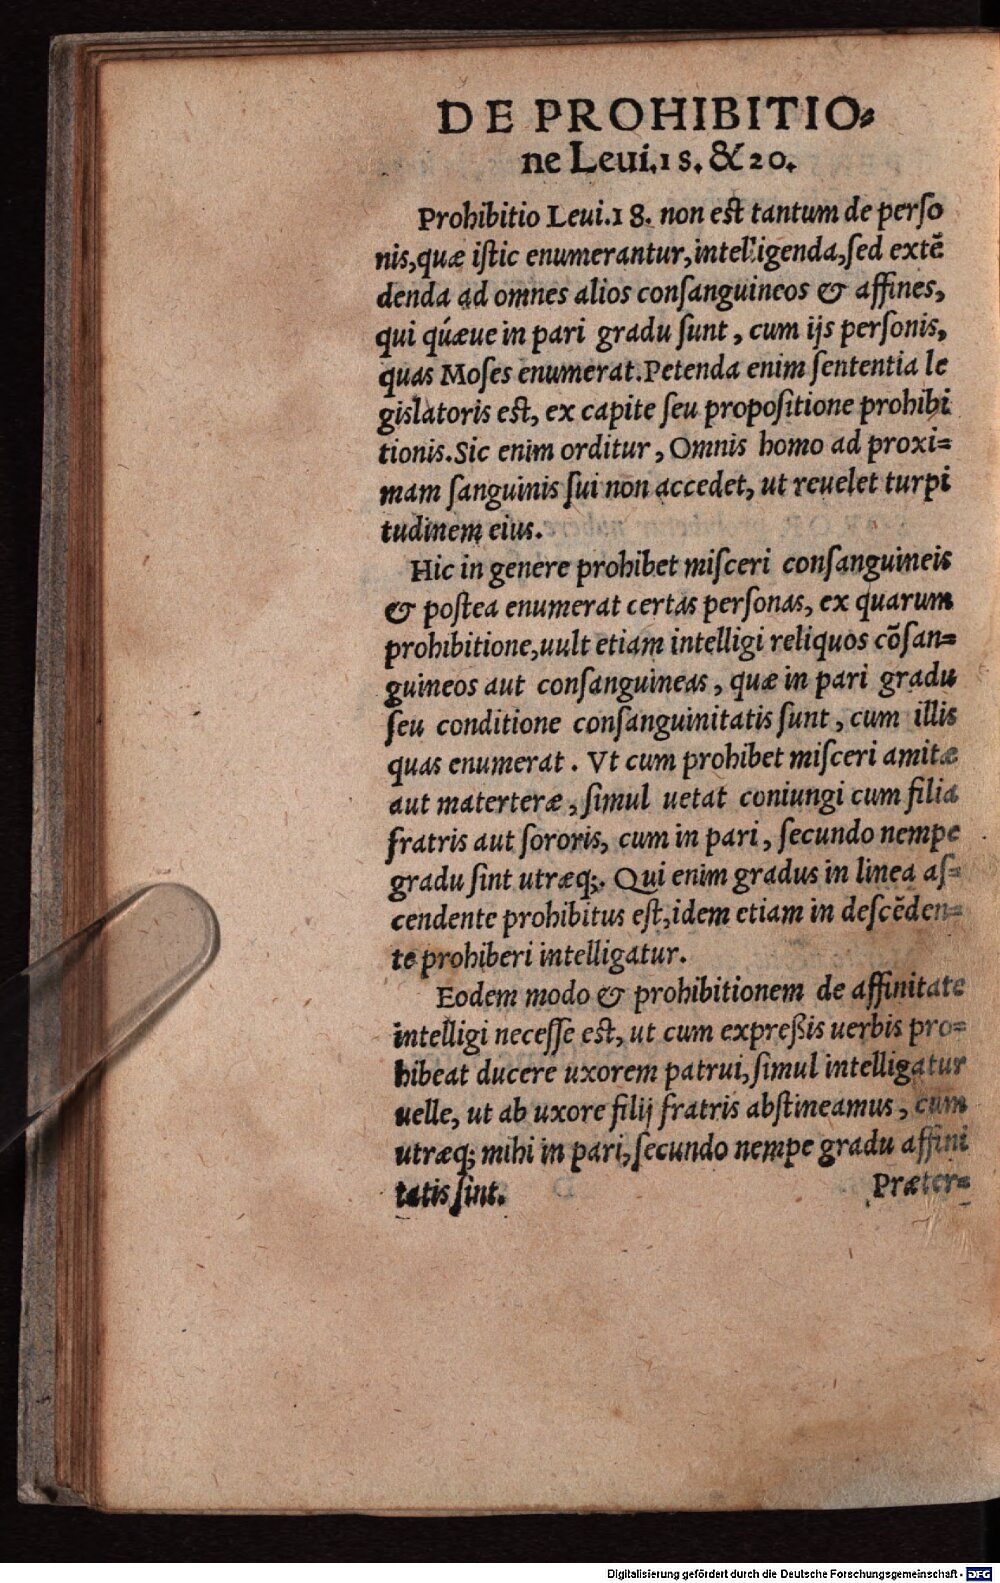 DE PROHIBITIO-
ne Leui.18. & 20.
Prohibitio Leui.18. non est tantum de perso
nis,quæ istic enumerantur,intelligenda,sed extẽ
denda ad omnes alios consanguineos & affines,
qui quǽue in pari gradu sunt, cum ijs personis,
quas Moses enumerat. Petenda enim sententia le
gislatoris est, ex capite seu propositione prohibi
tionis. Sic enim orditur, Omnis homo ad proxi=
mam sanguinis sui non accedet, ut reuelet turpi
tudinem eius.
Hic in genere prohibet misceri consanguineis
& postea enumerat certas personas, ex quarum
prohibitione,uult etiam intelligi reliquos cõsan=
guineos aut consanguineas, quæ in pari gradu
seu conditione consanguinitatis sunt, cum illis
quas enumerat. Vt cum prohibet misceri amitæ
aut materteræ, simul uetat coniungi cum filia
fratris aut sororis, cum in pari, secundo nempe
gradu sint utræq;. Qui enim gradus in linea as=
cendente prohibitus est,idem etiam in descẽden=
te prohiberi intelligatur.
Eodem modo & prohibitionem de affinitate
intelligi necesse est, ut cum expreßis uerbis pro=
hibeat ducere uxorem patrui,simul intelligatur
uelle, ut ab uxore filij fratris abstineamus, cum
utræq; mihi in pari,secundo nempe gradu affini
tatis sint.
Præter=
Digitalisierung gefördert durch die Deutsche Forschungsgemeinschaft - DFG